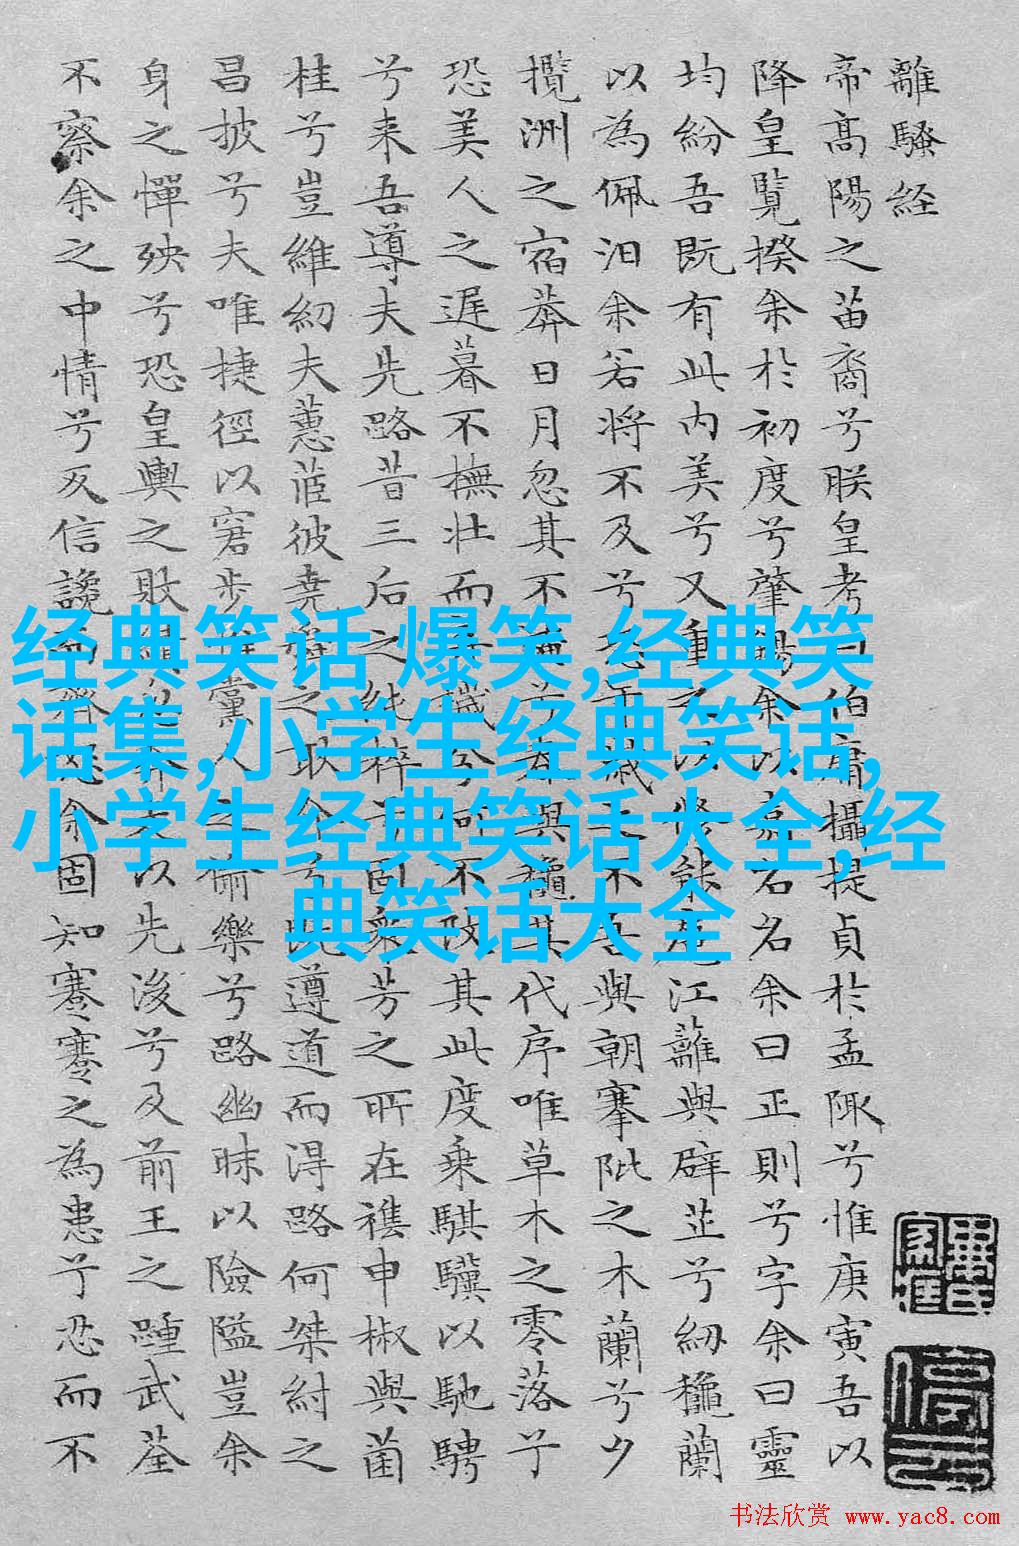 離騷経
帝高陽之苗裔兮朕皇考曰伯庸攝提貞於孟陬兮惟庚寅吾以
降皇覽揆余於初度兮肇錫余以嘉名名余曰正則兮字余曰靈
均紛吾既有此内美兮又重之以修能扈江蘺與辟芷兮紉龝蘭
以為佩汩余若將不及兮恐年歲之不吾與朝搴阰之木蘭兮夕
攬洲之宿莽日月忽其不淹兮春與龝其代序唯草木之零落兮
恐美人之遲暮不撫壯而棄穢兮何不改其此度乗騏驥以馳騁
兮来吾導夫先路昔三后之純粹兮固衆芳之所在雜申椒與菌
桂兮豈維紉夫蕙茝彼堯舜之耿介兮既遵道而得路何桀紂之
昌披兮夫唯捷徑以窘步惟黨人之偷樂兮路幽昧以險隘豈余
身之憚殃兮恐皇輿之敗績忽奔走以先後兮及前王之踵武荃
不察余之中情兮反信讒而齊怒余固知謇謇之為患兮忍而不
经典笑话 爆笑,经典笑
话集,小学生经典笑话,
小学生经典笑话大全,经
典笑话大全
书法欣赏 www.yac8.com